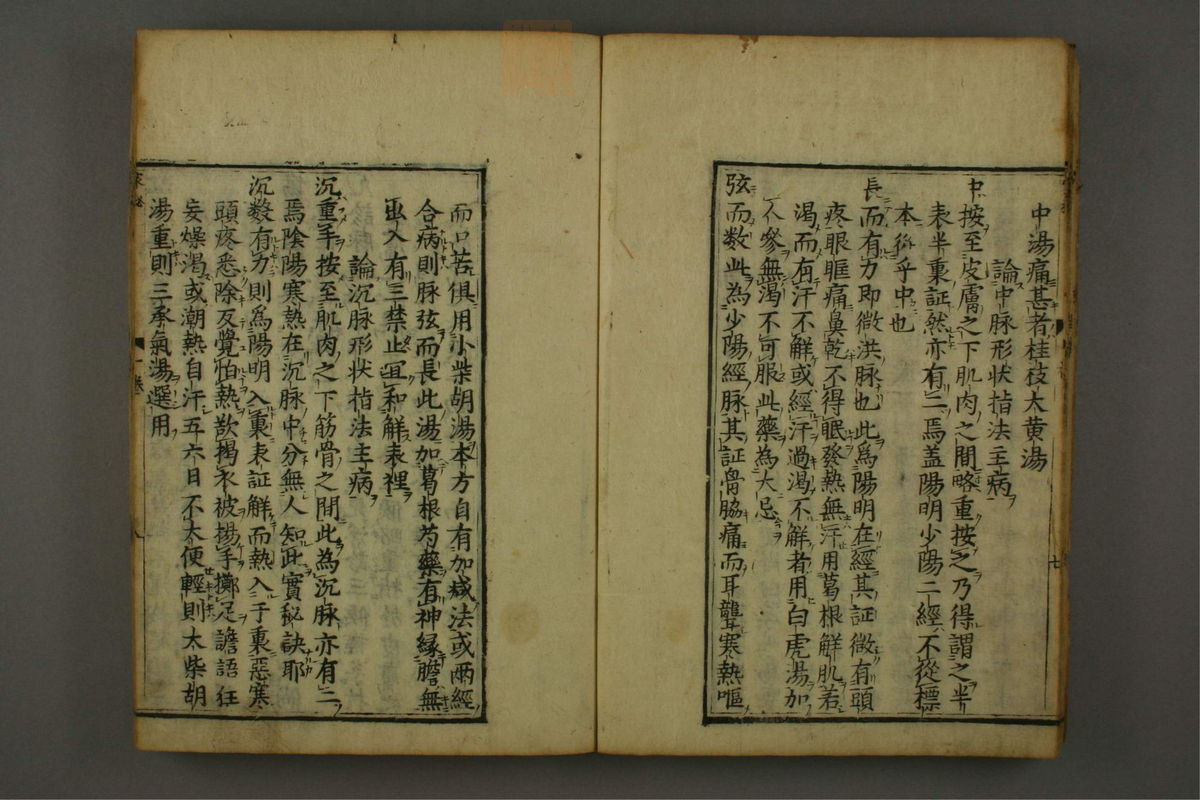 中湯痛甚者桂枝大黄湯
論中脉形状指法主病
中按至皮膚之下肌肉之間略重按之乃得謂之半
表半裏証然亦有二焉盖陽明少陽二經不從標
本從乎中也
長而有力即微洪脉也此為陽明在經其証微有頭
疼眼眶痛鼻乾不得眠發熱無汗用葛根解肌若
渴而有汗不解或經汗過渴不解者用白虎湯加
人參無渴不可服此藥為大忌
弦而数此為少陽經脉其証骨脇痛而耳聾寒熱嘔
七
而口苦俱用小柴胡湯本方自有加减法或兩經
合病則脉弦而長此湯加葛根芍藥有神縁膽無
出入有三禁止冝和解表裡
論沉脉形状指法主病
沉重手按至肌肉之下筋骨之間此為沉脉亦有二
焉陰陽寒熱在沉脉中分無人知此實秘訣耶
沉数有力則為陽明入裏表証解而熱入于裏惡寒
頭疼悉除反覺怕熱歆揭衣被揚手擲足譫語狂
妄燥渴或潮熱自汗五六日不大便輕則大柴胡
湯重則三承氣湯選用
一巻